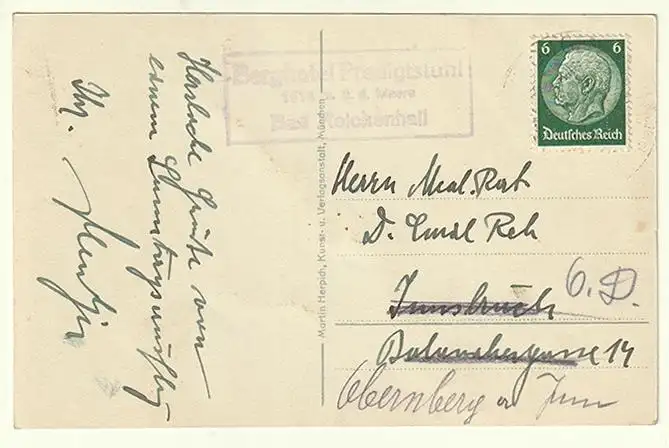 Herzliche Grüße von
einem Sonntagsausflug
Ihr
Berghotel Predigtstuhl
1614 m ü. d. Meere
Bad Reichenhall
Martin Herpich, Kunst- u. Verlagsanstalt, München
6 6
Deutsches Reich
Herrn Med. Rat
D. Emil
Innsbruck O.D.
14
Obernberg a Inn